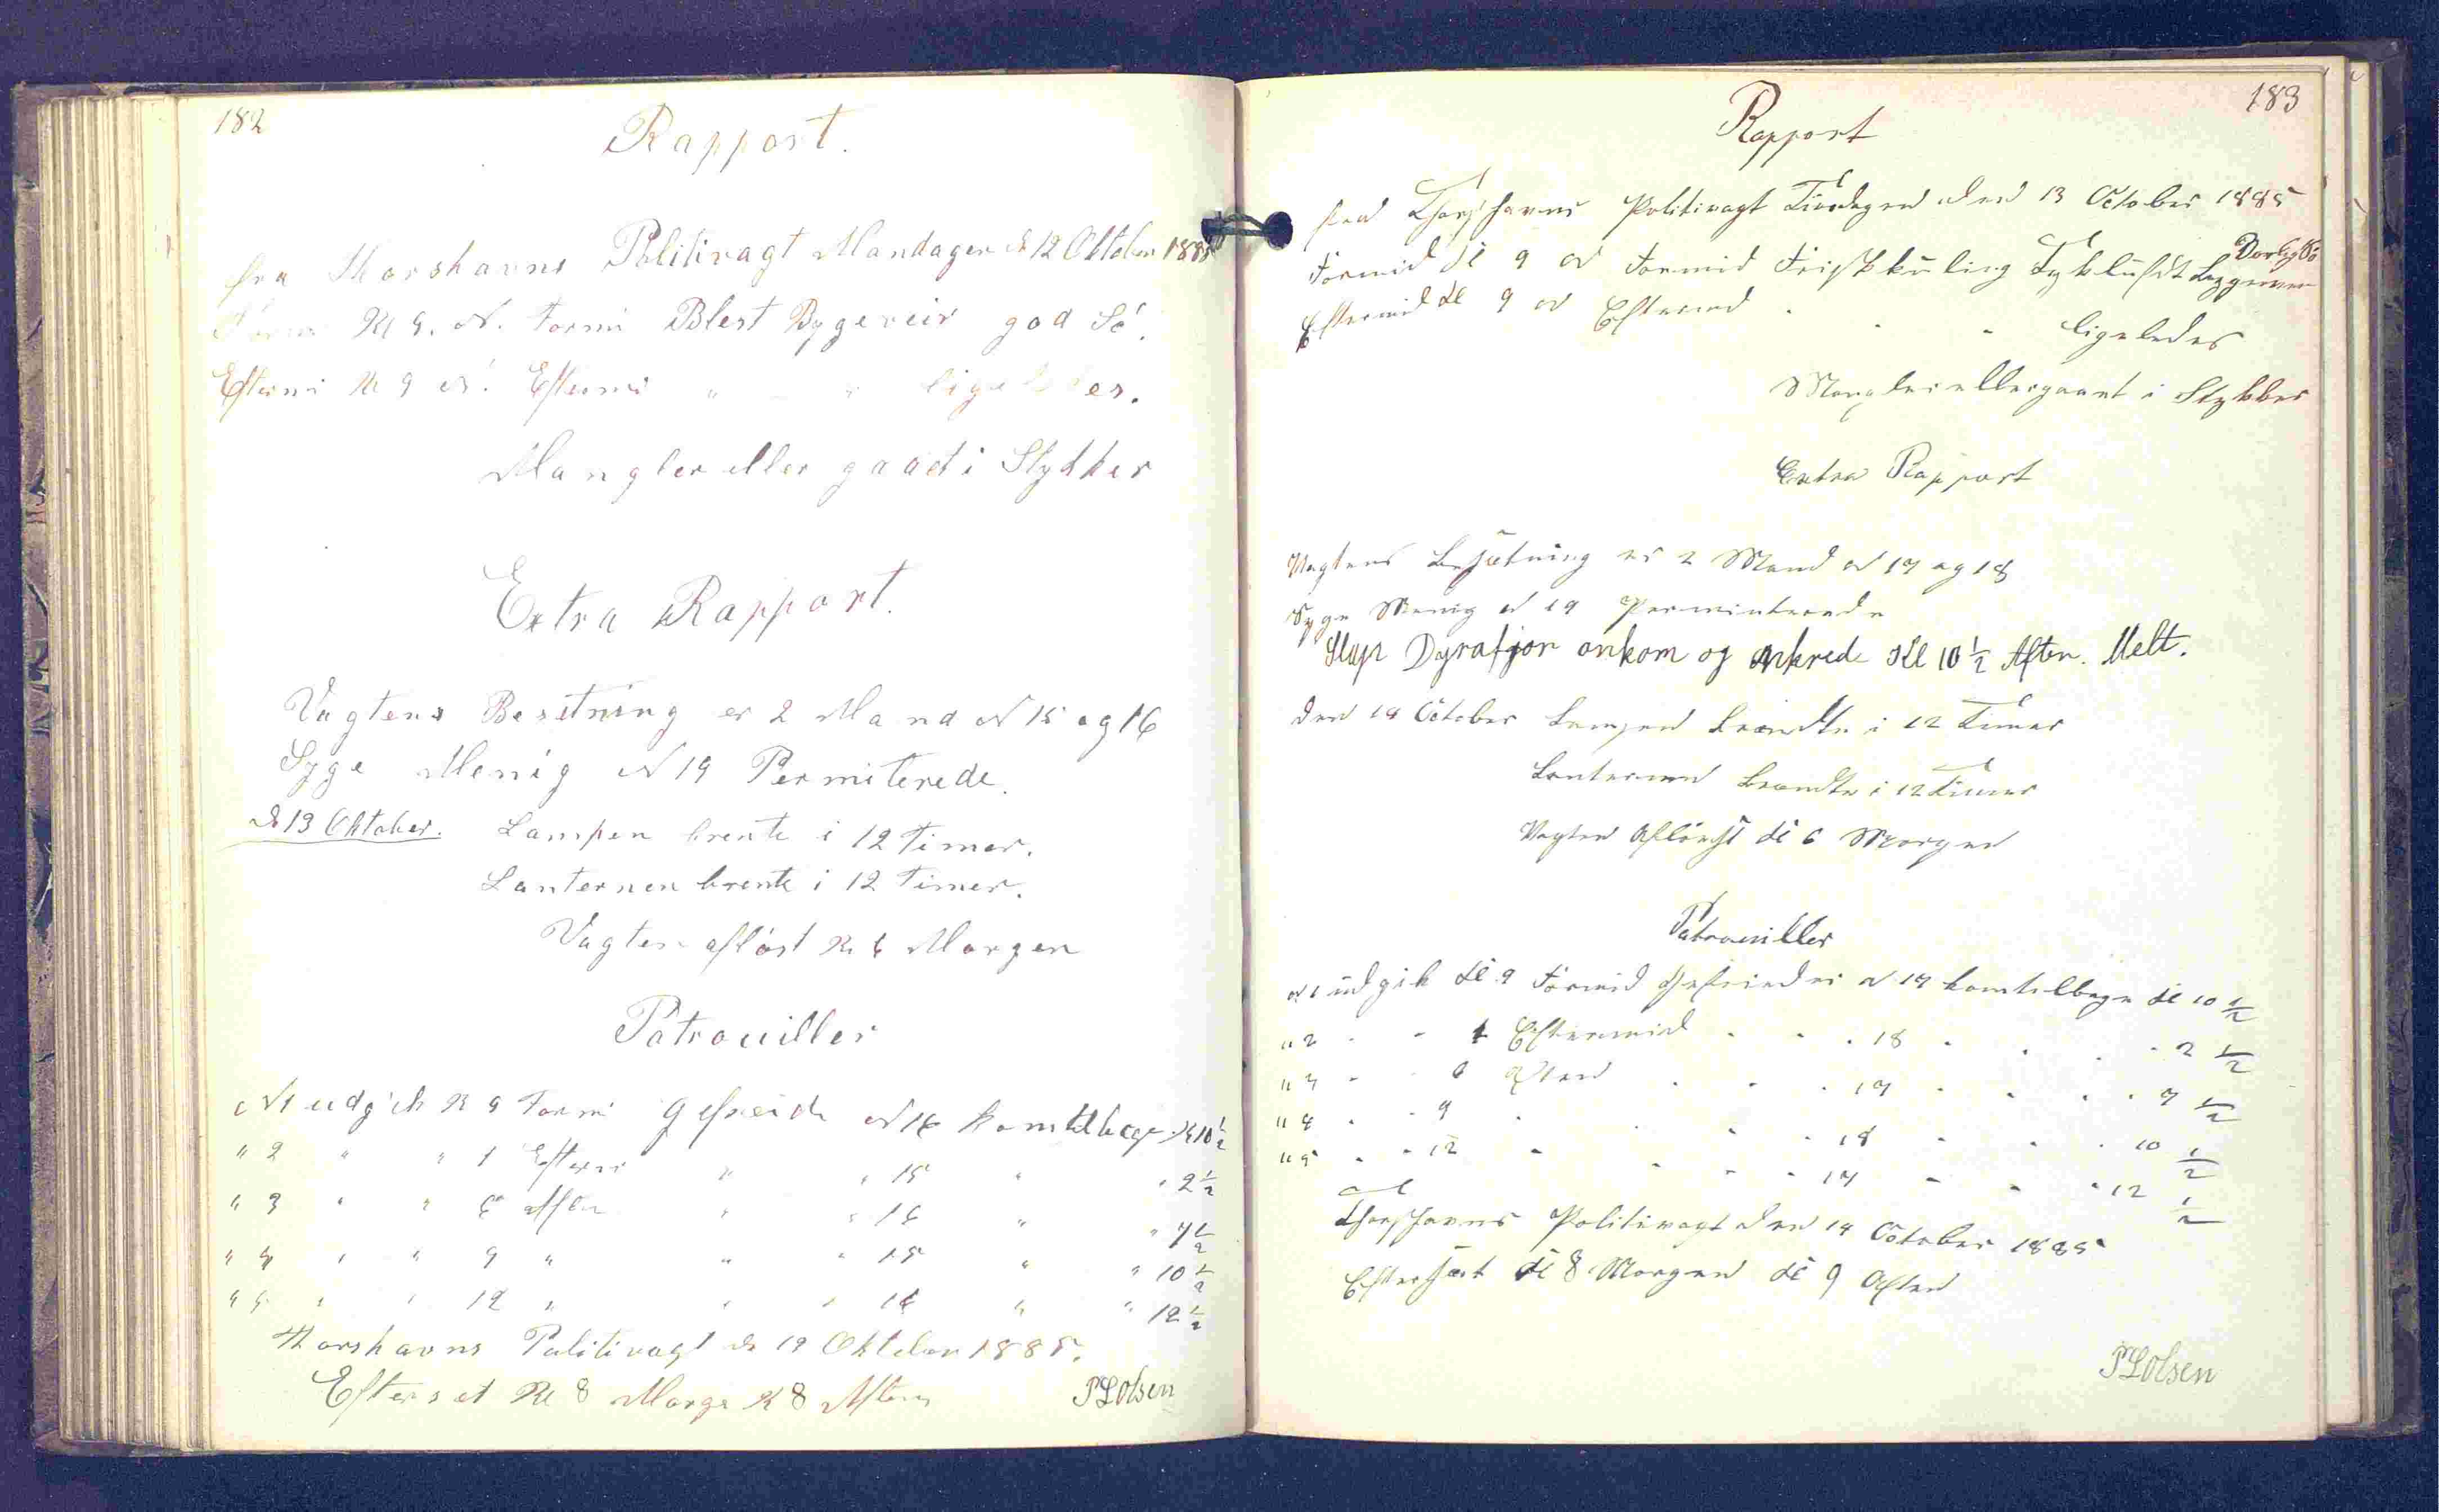 182
Rapport.
fra Thorshavns Politivagt Mandagen d 12 Oktober 1885
Formi Kl 9. N. Formi Blest Bygeveir god Sö.
Eftermi Kl 9 N. Eftermi " – " ligeledes.
Mangler eller gaaet i Stykker
Extra Rapport.
Vagtens Besetning er 2 Mand N 15 og 16
Syge Menig N 19 Permiterede.
d 13 Oktober. Lampen brente i 12 Timer.
Lanternen brente i 12 Timer.
Vagten aflöst Kl 6 Morgen
Patrouiller
N 1 udgik Kl 9 Formi Gefreide N 16 kom tilbage Kl 10 1/2
" 2 " " 1 Eftermi " " 15 " " 2 1/2
" 3 " " 6 Aften " " 16 " " 7 1/2
" 4 " " 9 " " " 15 " " 10 1/2
" 5 " " 12 " " " 16 " " 12 1/2
Thorshavns Politivagt d 13 Oktober 1885.
Efterset Kl 8 Morge Kl 8 Aften PLOlsen
183
Rapport
fra Thorshavns Politivagt Tirsdagen den 13 October 1885
Dorlig Sö
Formid Kl 9 N Formid Friskkuling Tykluft
Eftermid Kl 9 N Eftermid " " " ligeledes
Mangler eller gaaet i Stykker
Extra Rapport
Vagtens Besætning er 2 Mand N 17 og 18
Syge Menig N 19 Perminterede
Slup Dyrafjor ankom og ankrede Kl 10 1/2 Aften. Melt.
den 14 October Lampen brændte i 12 Timer
Lanternen brændte i 12 Timer
Vagten Aflöst Kl 6 Morgen
Patrouiller
N 1 udgik Kl 9 Formid Gefrieder N 17 kom tilbage Kl 10 1/2
" 2 " " 1 Eftermid " " " 18 " " " 2 1/2
" 3 " " 6 Aften " " " 17 " " " 7 1/2
" 4 " " 9 " " " " 18 " " " 10 1/2
" 5 " " 12 " " " " 17 " " " 12 1/2
Thorshavns Politivagt den 14 October 1885
Efterset Kl 8 Morgen Kl 9 Aften
PLOlsen